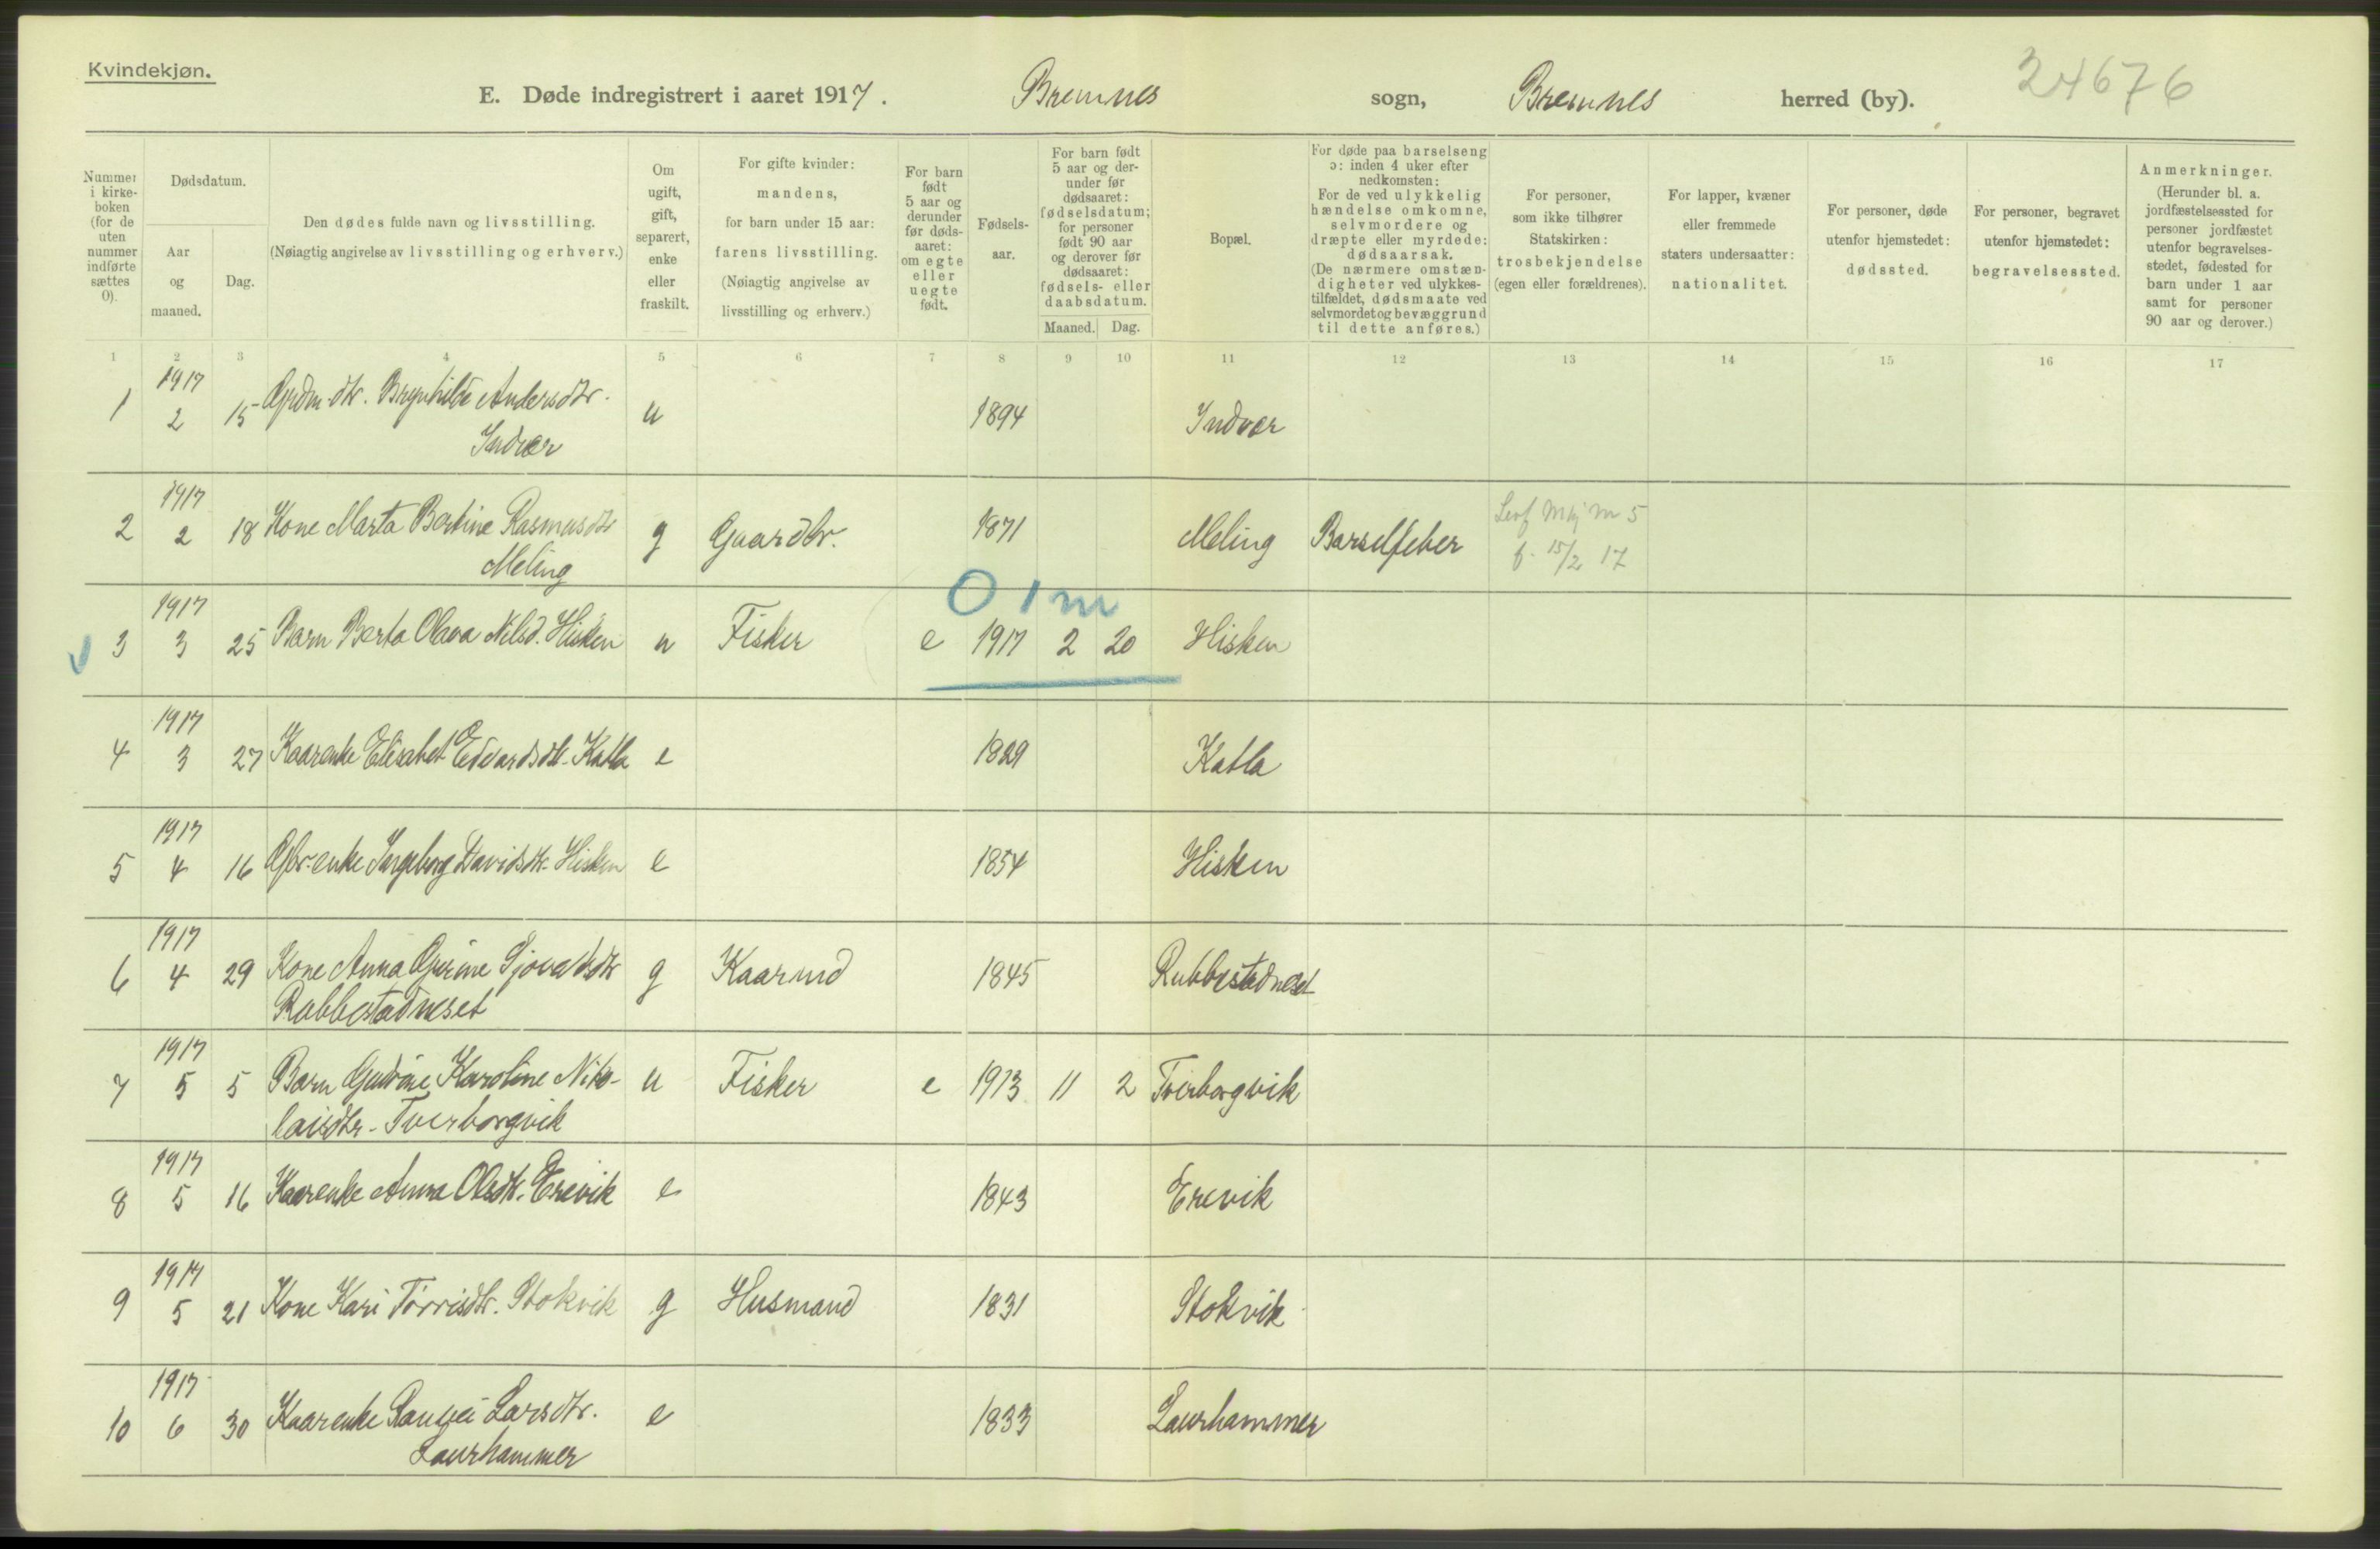 Kvindekjøn.
E. Døde indregistrert i aaret 1917. Bremnes sogn, Bremnes herred (by). 24676
Nummer i kirke-boken (for de uten nummer indførte sættes 0).
Dødsdatum.
Aar og maaned.
Dag.
Den dødes fulde navn og livsstilling.
(Nøiagtig angivelse av livsstilling og erhverv.)
Om ugift, gift, separert, enke eller fraskilt.
For gifte kvinder:
mandens,
for barn under 15 aar:
farens livsstilling.
(Nøiagtig angivelse av
livsstilling og erhverv.)
For barn født 5 aar og derunder før døds-aaret: om egte eller uegte født.
Fødsels-aar.
For barn født 5 aar og der-under før dødsaaret: fødselsdatum; for personer født 90 aar og derover før dødsaaret: fødsels- eller daabsdatum.
Maaned. Dag.
Bopæl.
For døde paa barselseng
ɔ: inden 4 uker efter
nedkomsten:
For de ved ulykkelig
hændelse omkomne,
selvmordere og
dræpte eller myrdede:
dødsaarsak.
(De nærmere omstæn-
digheter ved ulykkes-
tilfældet, dødsmaate ved
selvmordet og bevæggrund
til dette anføres.)
For personer,
som ikke tilhører
Statskirken:
trosbekjendelse
(egen eller forældrenes).
For lapper, kvæner
eller fremmede
staters undersaatter:
nationalitet.
For personer, døde
utenfor hjemstedet:
dødssted.
For personer, begravet
utenfor hjemstedet:
begravelsessted.
Anmerkninger.
(Herunder bl. a.
jordfæstelsessted for
personer jordfæstet
utenfor begravelses-
stedet, fødested for
barn under 1 aar
samt for personer
90 aar og derover.)
1 2 3 4 5 6 7 8 9 10 11 12 13 14 15 16 17
1917
1 2 15 Brynhilde Andersdtr. u 1894 Indvær
Indvær
1917
2 2 18 Kone Marta Bertine Rasmusdtr g Gaardbr. 1871 Meling Barselfeber
Meling
m 5
f. 15/2 17
0 1 m
1917
3 3 25 Barn Berta Olava Nilsd. Hisken u Fisker e 1917 2 20 Hisken
1917
4 3 27 Kaarenke Elisabet Edvardsdtr. Katla e 1829 Katla
1917
5 4 16 Gbr-enke Ingeborg Davidsdtr. Hisken e 1854 Hisken
1917
6 4 29 Kone Anna g Kaarmd 1845 Rubbestadneset
Rubbestadneset
1917
7 5 5 Barn Gudrine Karoline Niko- u Fisker e 1913 11 2 Tverborgvik
laisdtr - Tverborgvik
1917
8 5 16 Kaarenke Anna Olsdtr. Erevik e 1843 Erevik
1917
9 5 21 Kone Kari Torrisdtr. Stokvik g Husmand 1831 Stokvik
1917
10 6 30 Kaarenke Larsdtr. e 1833 Laurhammer
Laurhammer